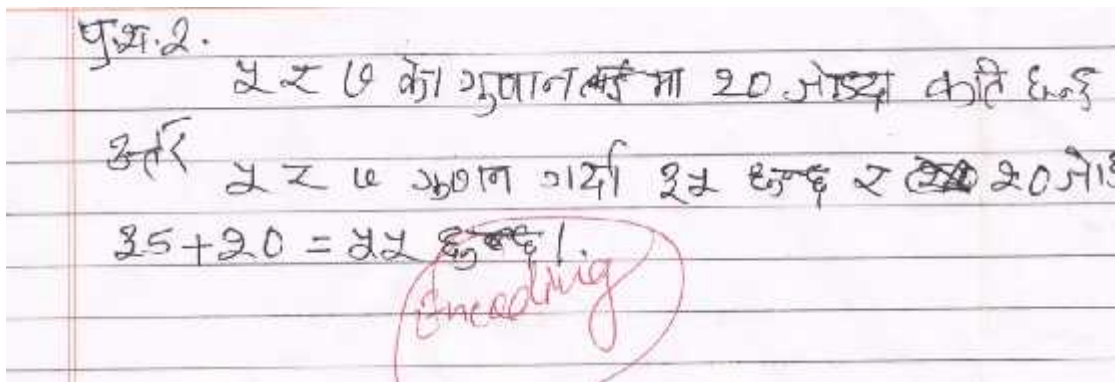 प्र.श.२.
५ र ७ को गुणनलाई मा २० जोड्दा कति हुन्छ
उत्तर ५ र ७ गुणन गर्दा ३५ हुन्छ र २० जो
३5+२० = ५५ हुन्छ।
Encoding